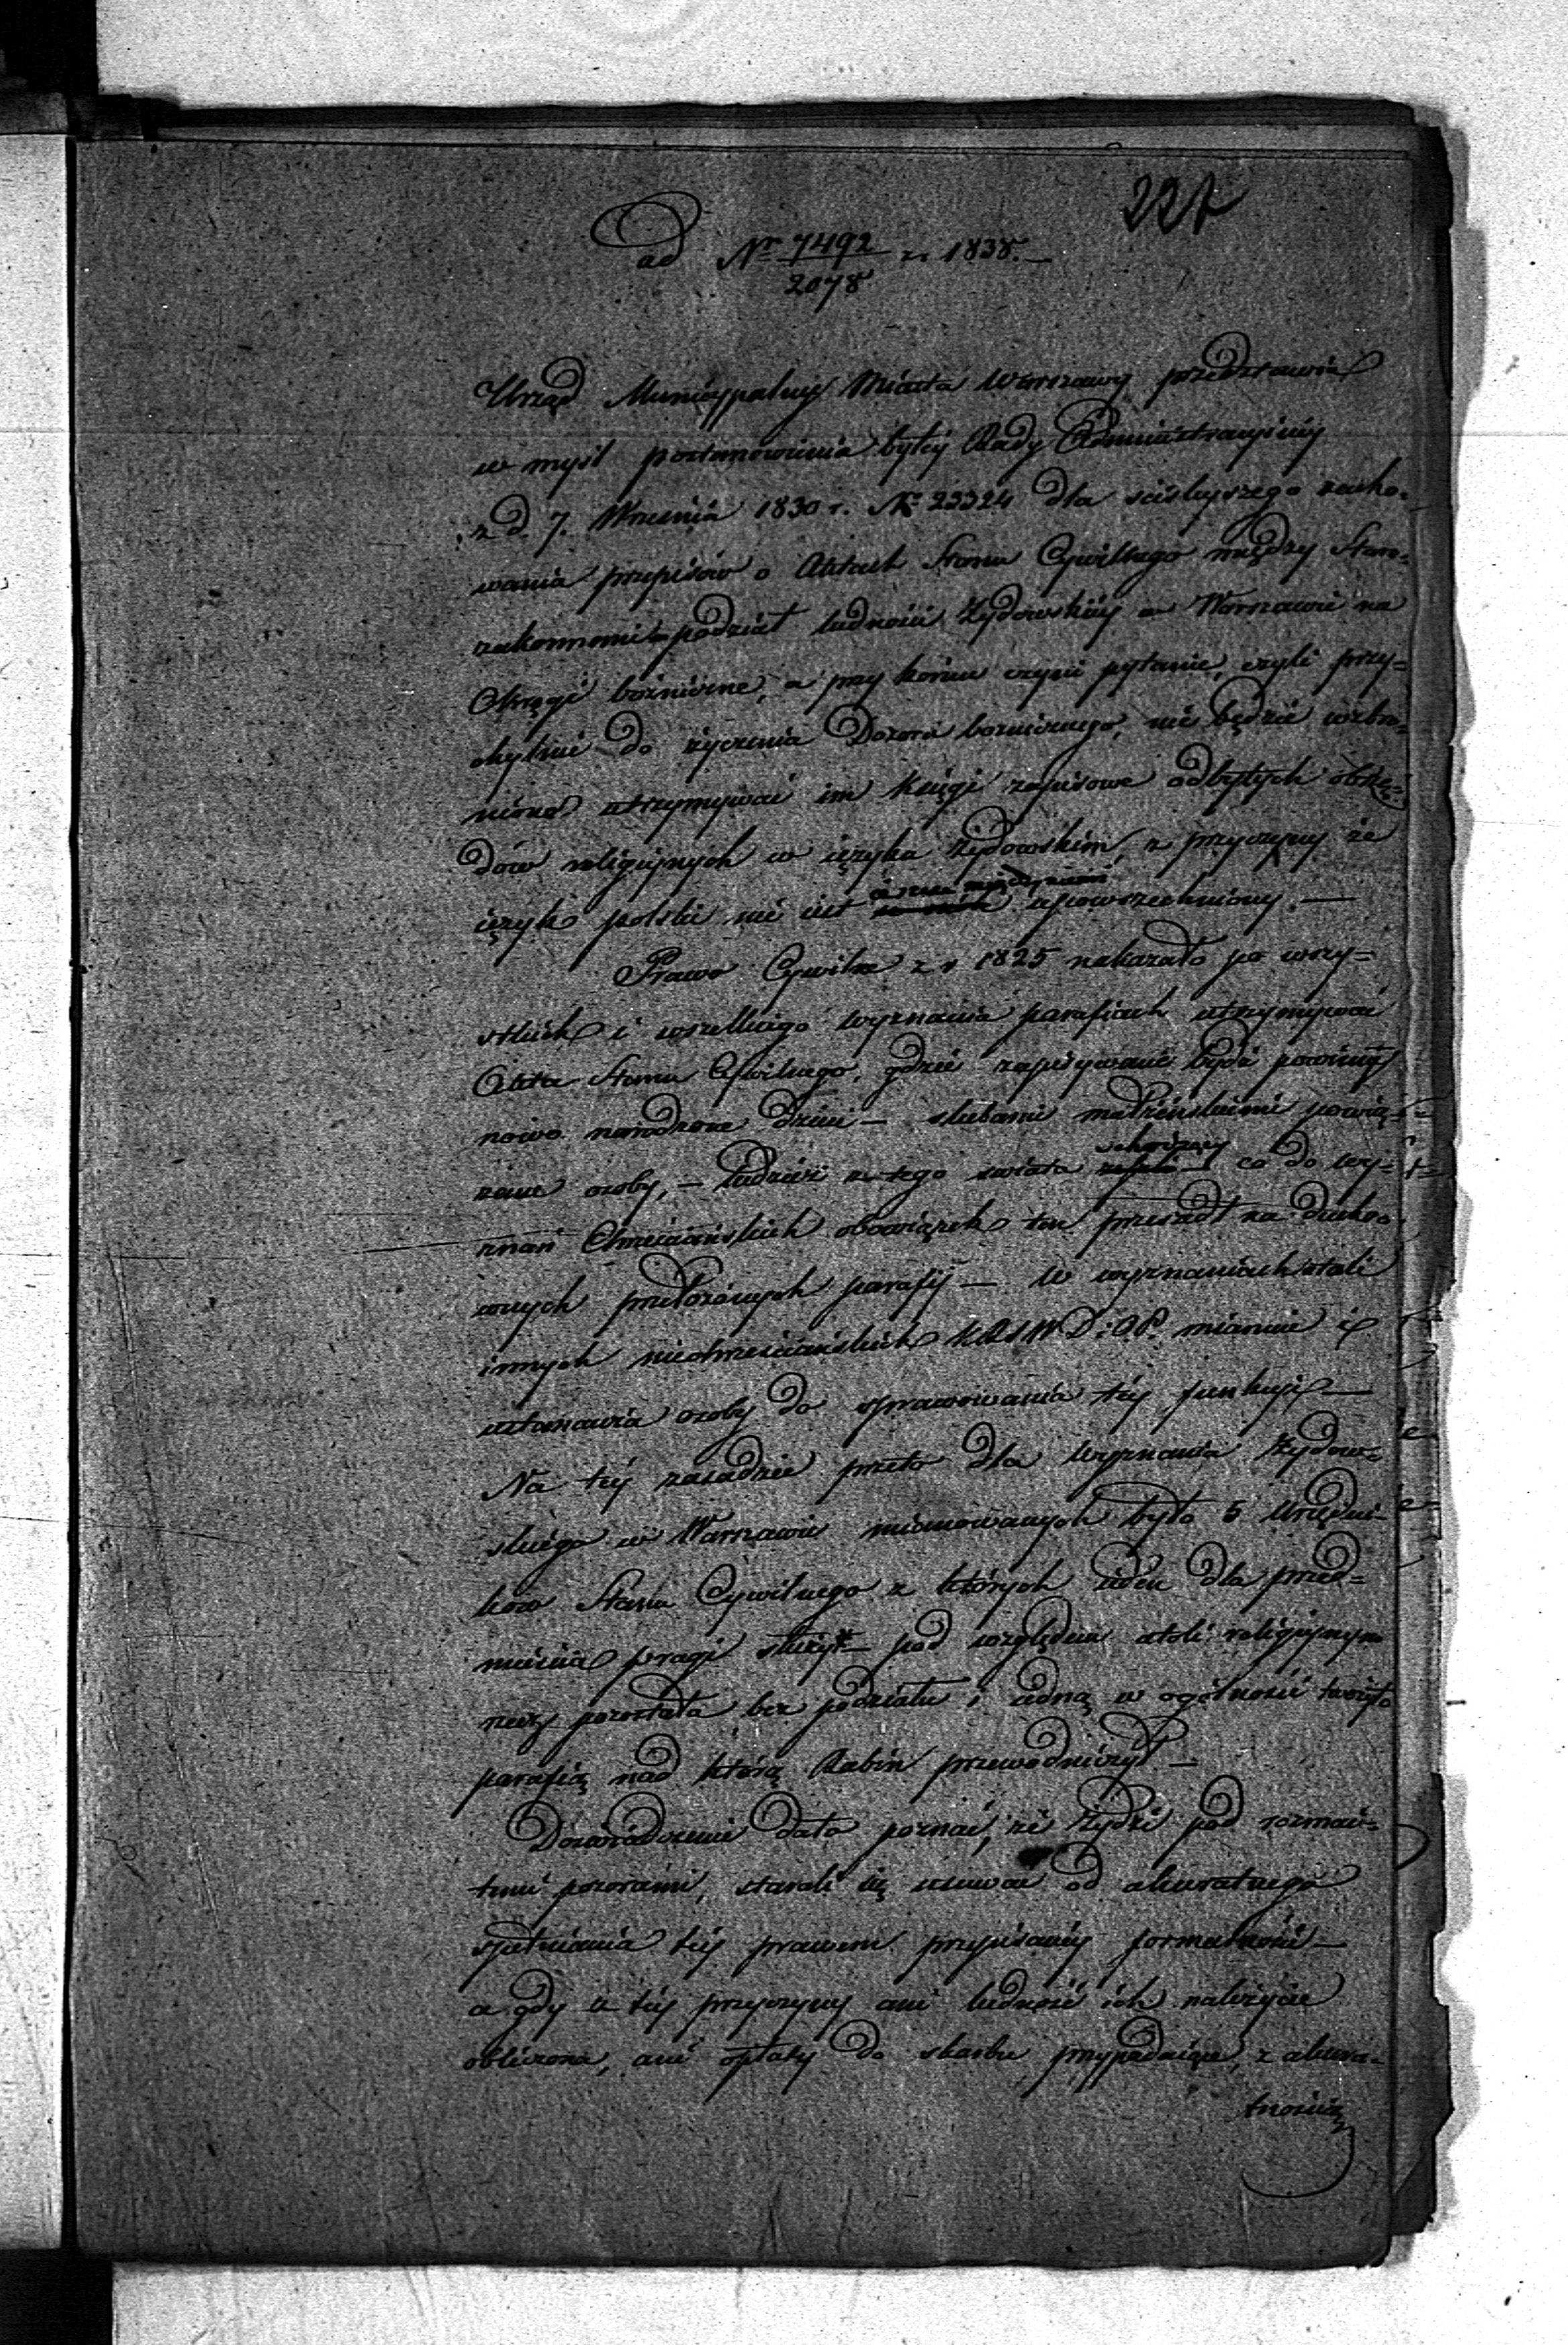 227
ad Nr 7492/2078 z r. 1838. —
Urząd Municypalny Miasta Warszawy przedstawia
w mysl postanowienia byłéy Rady Administracyinéy
z d. 7. Września 1830 r. Nr 23324 dla scisleyszego zacho-
wania przepisów o Aktach Stanu Cywilnego między Staro-
zakonnemi podział ludności Żydowskiéy w Warszawie na
Okręgi bożnicze, a przy końcu czyni pytanie, czyli przy-
chylnie do życzenia Dozoru boznicznego, nie będzie wzbro-
niono utrzymywać im księgi zapisowe odbytych obrzę-
dów religijnych w ięzyku żydowskim, z przyczyny że
ięzyk polski nie iest upowszechniony. —
Prawo Cywilne z r 1825 nakazało po wszy-
stkich i wszelkiego wyznania parafiach utrzymywać
Akta Stanu Cywilnego, gdzie zapisywane bydź powinny
nowo narodzone dzieci — slubami małżeńskiemi powią-
zane osoby, — tudzież z tego swiata schodzący co do wy-
znań Chrześciańskich obowiązek ten przeszedł na ducho-
wnych przełożonych parafij — w wyznaniach zaś
innych niechrześciańskich KRSWD i OP. mianuie i
ustanawia osoby do sprawowania téy funkcyi —
Na téy zasadzie przeto dla wyznania Żydow-
skiego w Warszawie mianowanych było 5 Urzędni-
kow Stanu Cywilnego z których ieden dla przed-
mieścia pragi służył — pod względem atoli religijnym
rzecz pozostała bez podziału i iedną w ogólności tworzyła
parafią nad którą Rabin przewodniczył —
Doswiadczenie dało poznać, że Żydzi pod rozmai-
temi pozorami, starali się usuwać od akuratnego
spełniania téy prawem przypisanéy formalności —
a gdy z téy przyczyny ani ludność ich należycie
obliczona, ani opłaty do skarbu przypadaiące, z akura-
tnością